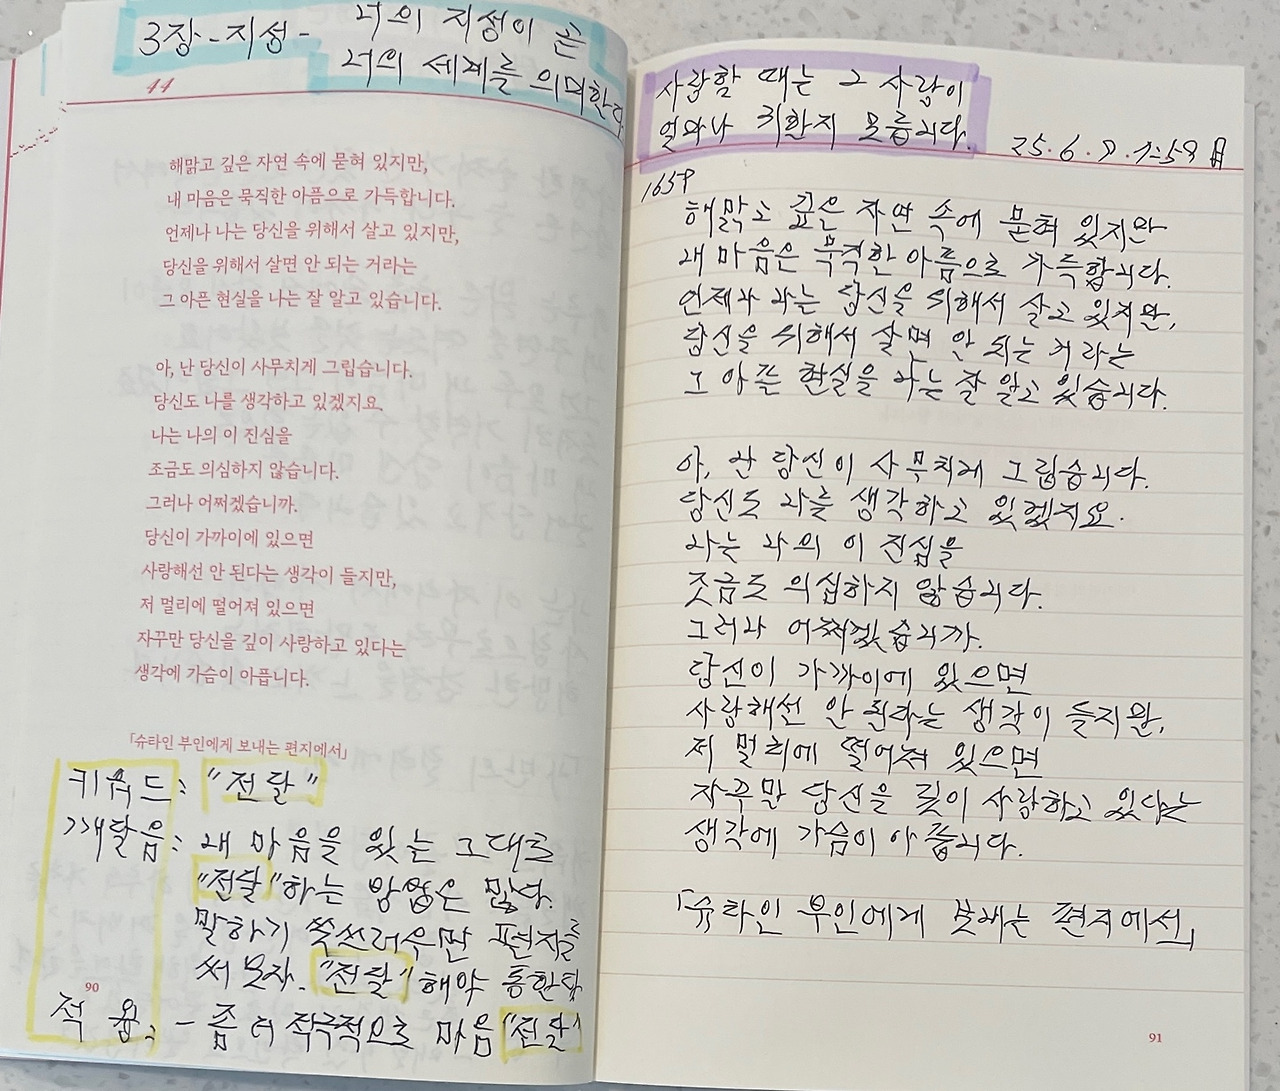 3장-지성- 너의 지성이 곧
너의 세계를 의미한다.
44
해맑고 깊은 자연 속에 묻혀 있지만,
내 마음은 묵직한 아픔으로 가득합니다.
언제나 나는 당신을 위해서 살고 있지만,
당신을 위해서 살면 안 되는 거라는
그 아픈 현실을 나는 잘 알고 있습니다.
아, 난 당신이 사무치게 그립습니다.
당신도 나를 생각하고 있겠지요.
나는 나의 이 진심을
조금도 의심하지 않습니다.
그러나 어쩌겠습니까.
당신이 가까이에 있으면
사랑해선 안 된다는 생각이 들지만,
저 멀리에 떨어져 있으면
자꾸만 당신을 깊이 사랑하고 있다는
생각에 가슴이 아픕니다.
「슈타인 부인에게 보내는 편지에서」
키워드: "전달"
깨달음: 내 마음을 있는 그대로
"전달"하는 방법은 많다.
말하기 쑥쓰러우면 편지를
써 보자. "전달"해야 통한다
90
적용: - 좀 더 적극적으로 마음 "전달"
사랑할 때는 그 사람이
얼마나 귀한지 모릅니다.
25. 6. 9. 1:59 月
1659
해맑고 깊은 자연 속에 묻혀 있지만
내 마음은 묵직한 아픔으로 가득합니다.
언제나 나는 당신을 위해서 살고 있지만,
당신을 위해서 살면 안 되는 거라는
그 아픈 현실을 나는 잘 알고 있습니다.
아, 난 당신이 사무치게 그립습니다.
당신도 나를 생각하고 있겠지요.
나는 나의 이 진심을
조금도 의심하지 않습니다.
그러나 어쩌겠습니까.
당신이 가까이에 있으면
사랑해선 안 된다는 생각이 들지만,
저 멀리에 떨어져 있으면
자꾸만 당신을 깊이 사랑하고 있다는
생각에 가슴이 아픕니다.
「슈타인 부인에게 보내는 편지에서」
91